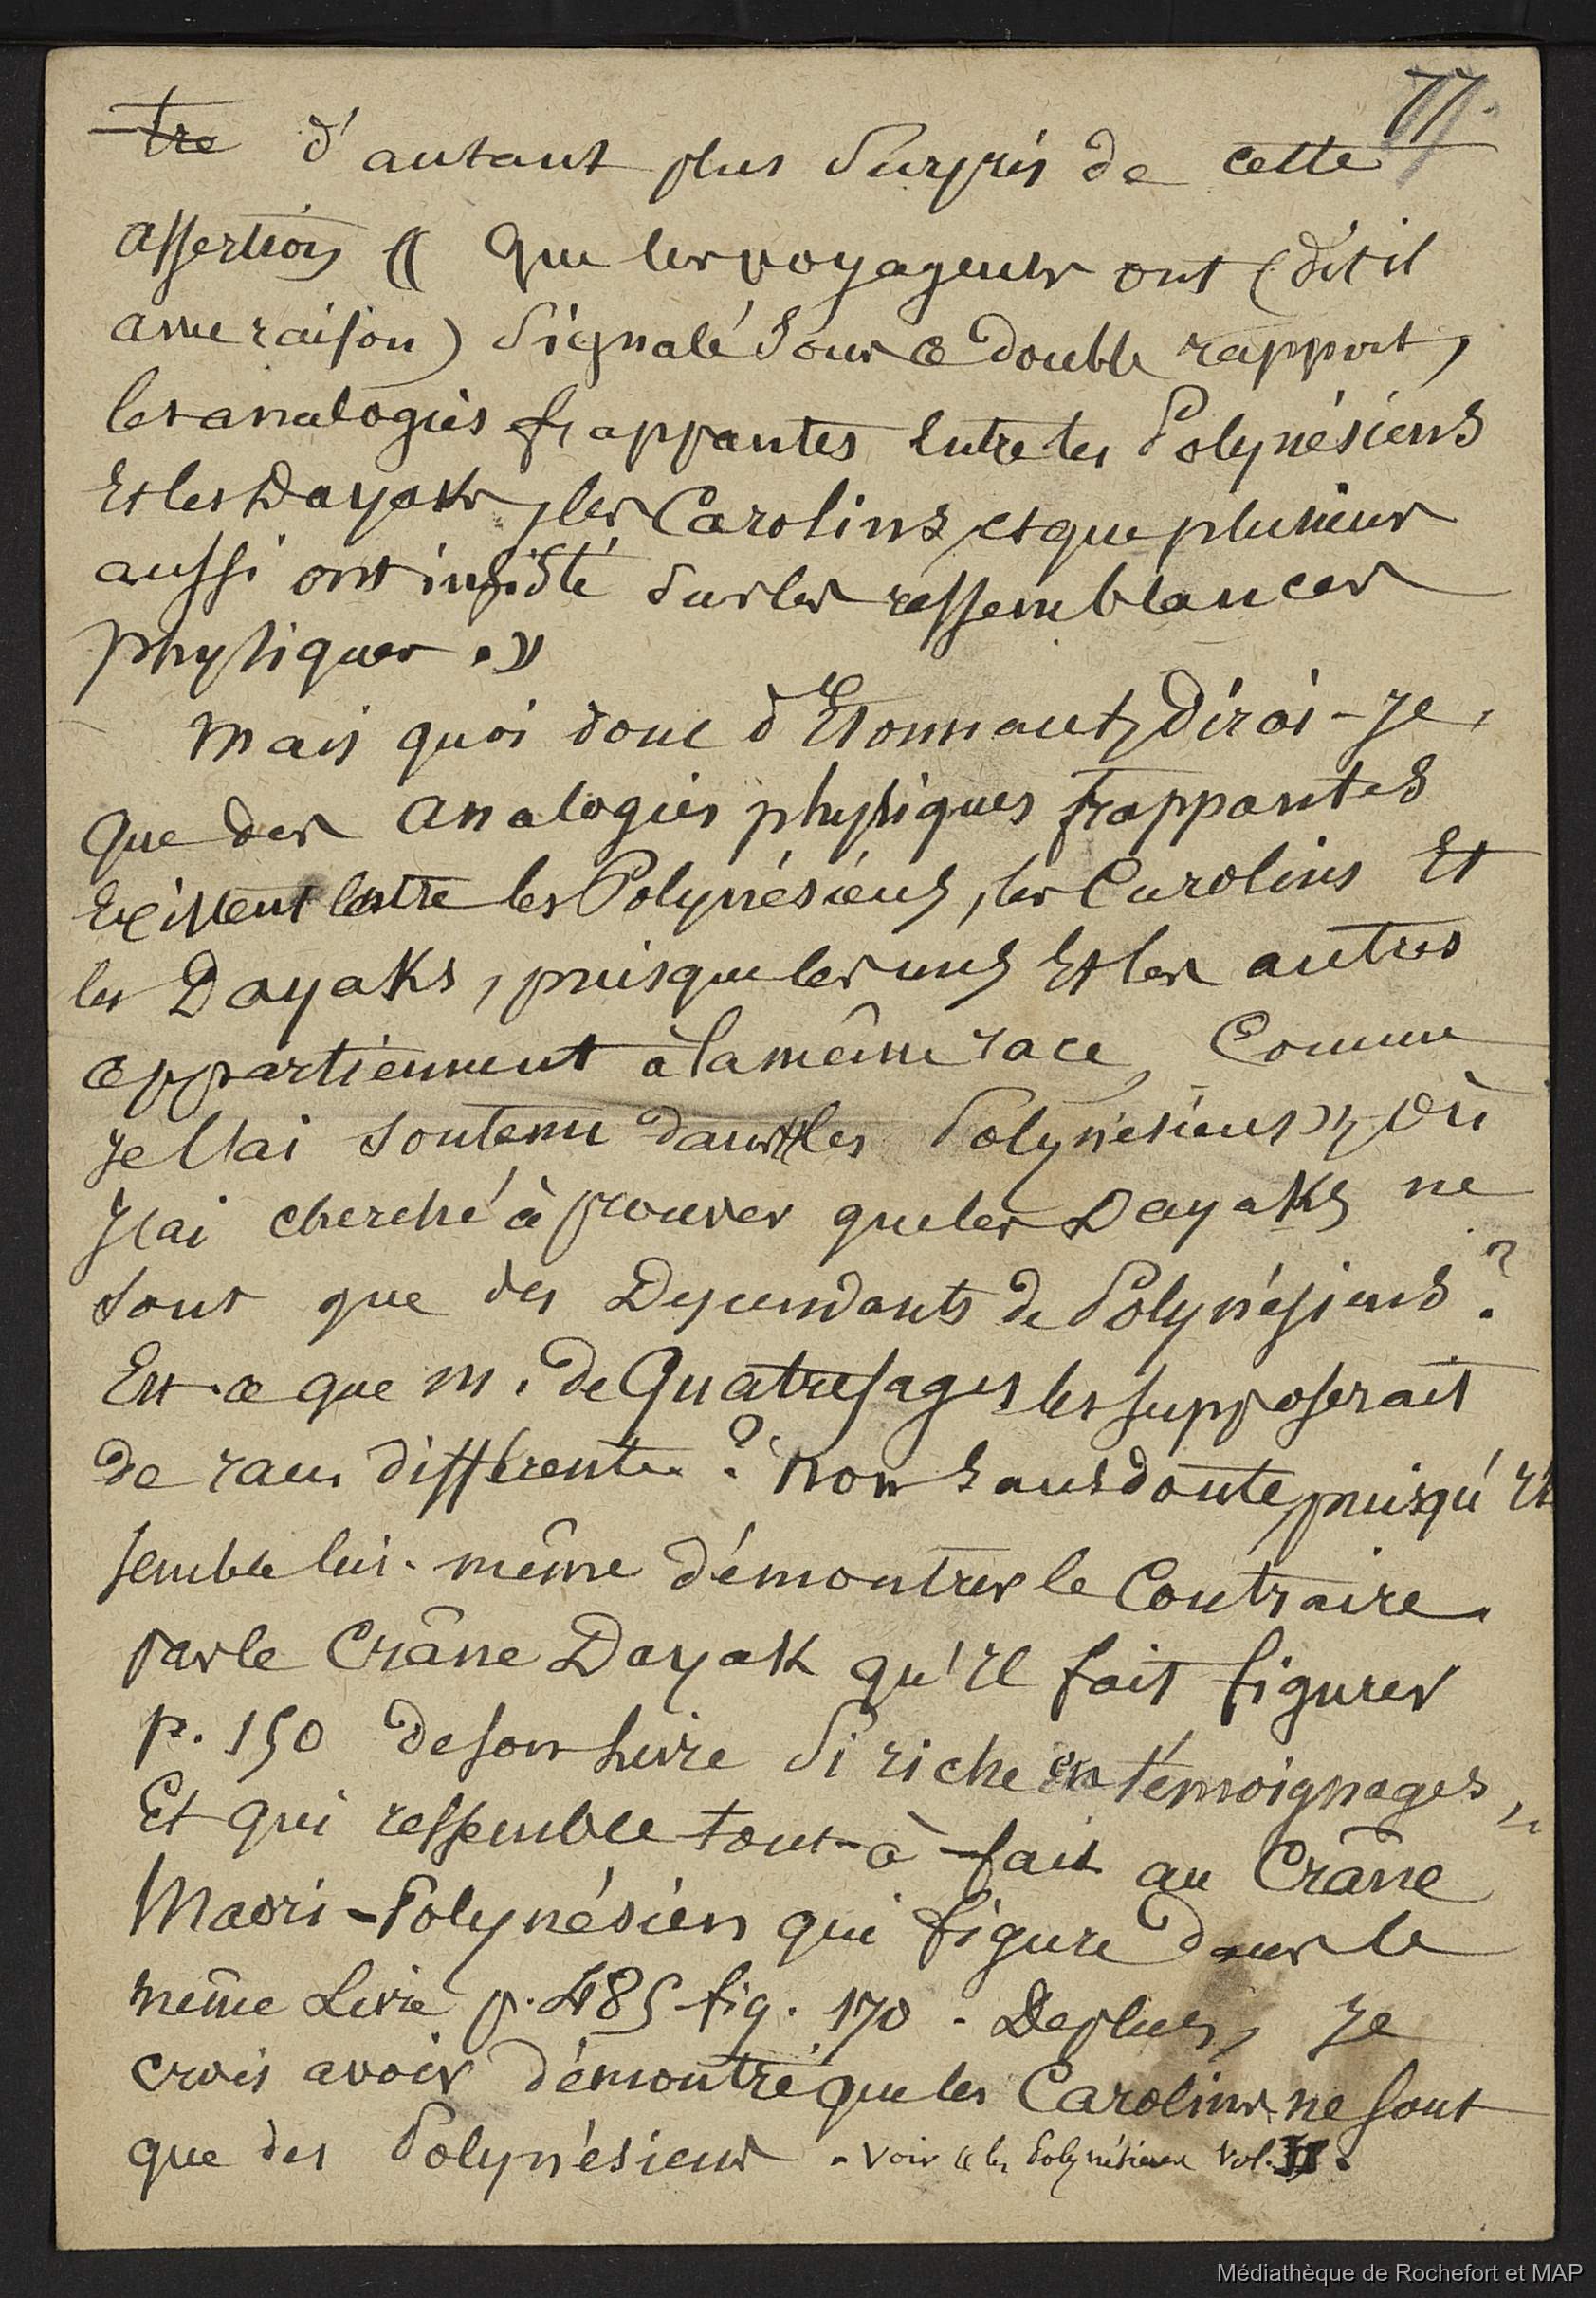 77.
-tre d'autant plus surpris de cette
assertion « Que les voyageurs ont (dit il
avec raison) signalé sous ce double rapport,
les analogies frappantes entre les Polynésiens
et les Dayaks, les Carolins, et que plusieurs
aussi ont insisté sur les ressemblances
physiques. »
Mais quoi donc d'Etonnant, dirai-je,
que des analogies physiques frappantes
Existent entre les Polynésiens, les Carolins Et
les Dayaks, puisque les uns Et les autres
appartiennent à la même race, Comme
je l'ai soutenu dans « les Polynésiens », où
j'ai cherché à prouver que les Dayaks ne
sont que des Descendants de Polynésiens ?
Est-ce que M. de Quatrefages les supposerait
de races différentes ? Non sans doute, puisqu'il
semble lui-même démontrer le Contraire
par le Crâne Dayak qu'il fait figurer
p. 150 de son livre si riche en témoignages,
Et qui ressemble tout-à-fait au Crâne
Maori-Polynésien qui figure dans le
même Livre p. 485 fig. 170. De plus, je
crois avoir démontré que les Carolins ne sont
que des Polynésiens. Voir « les Polynésiens Vol.
Médiathèque de Rochefort et MAP